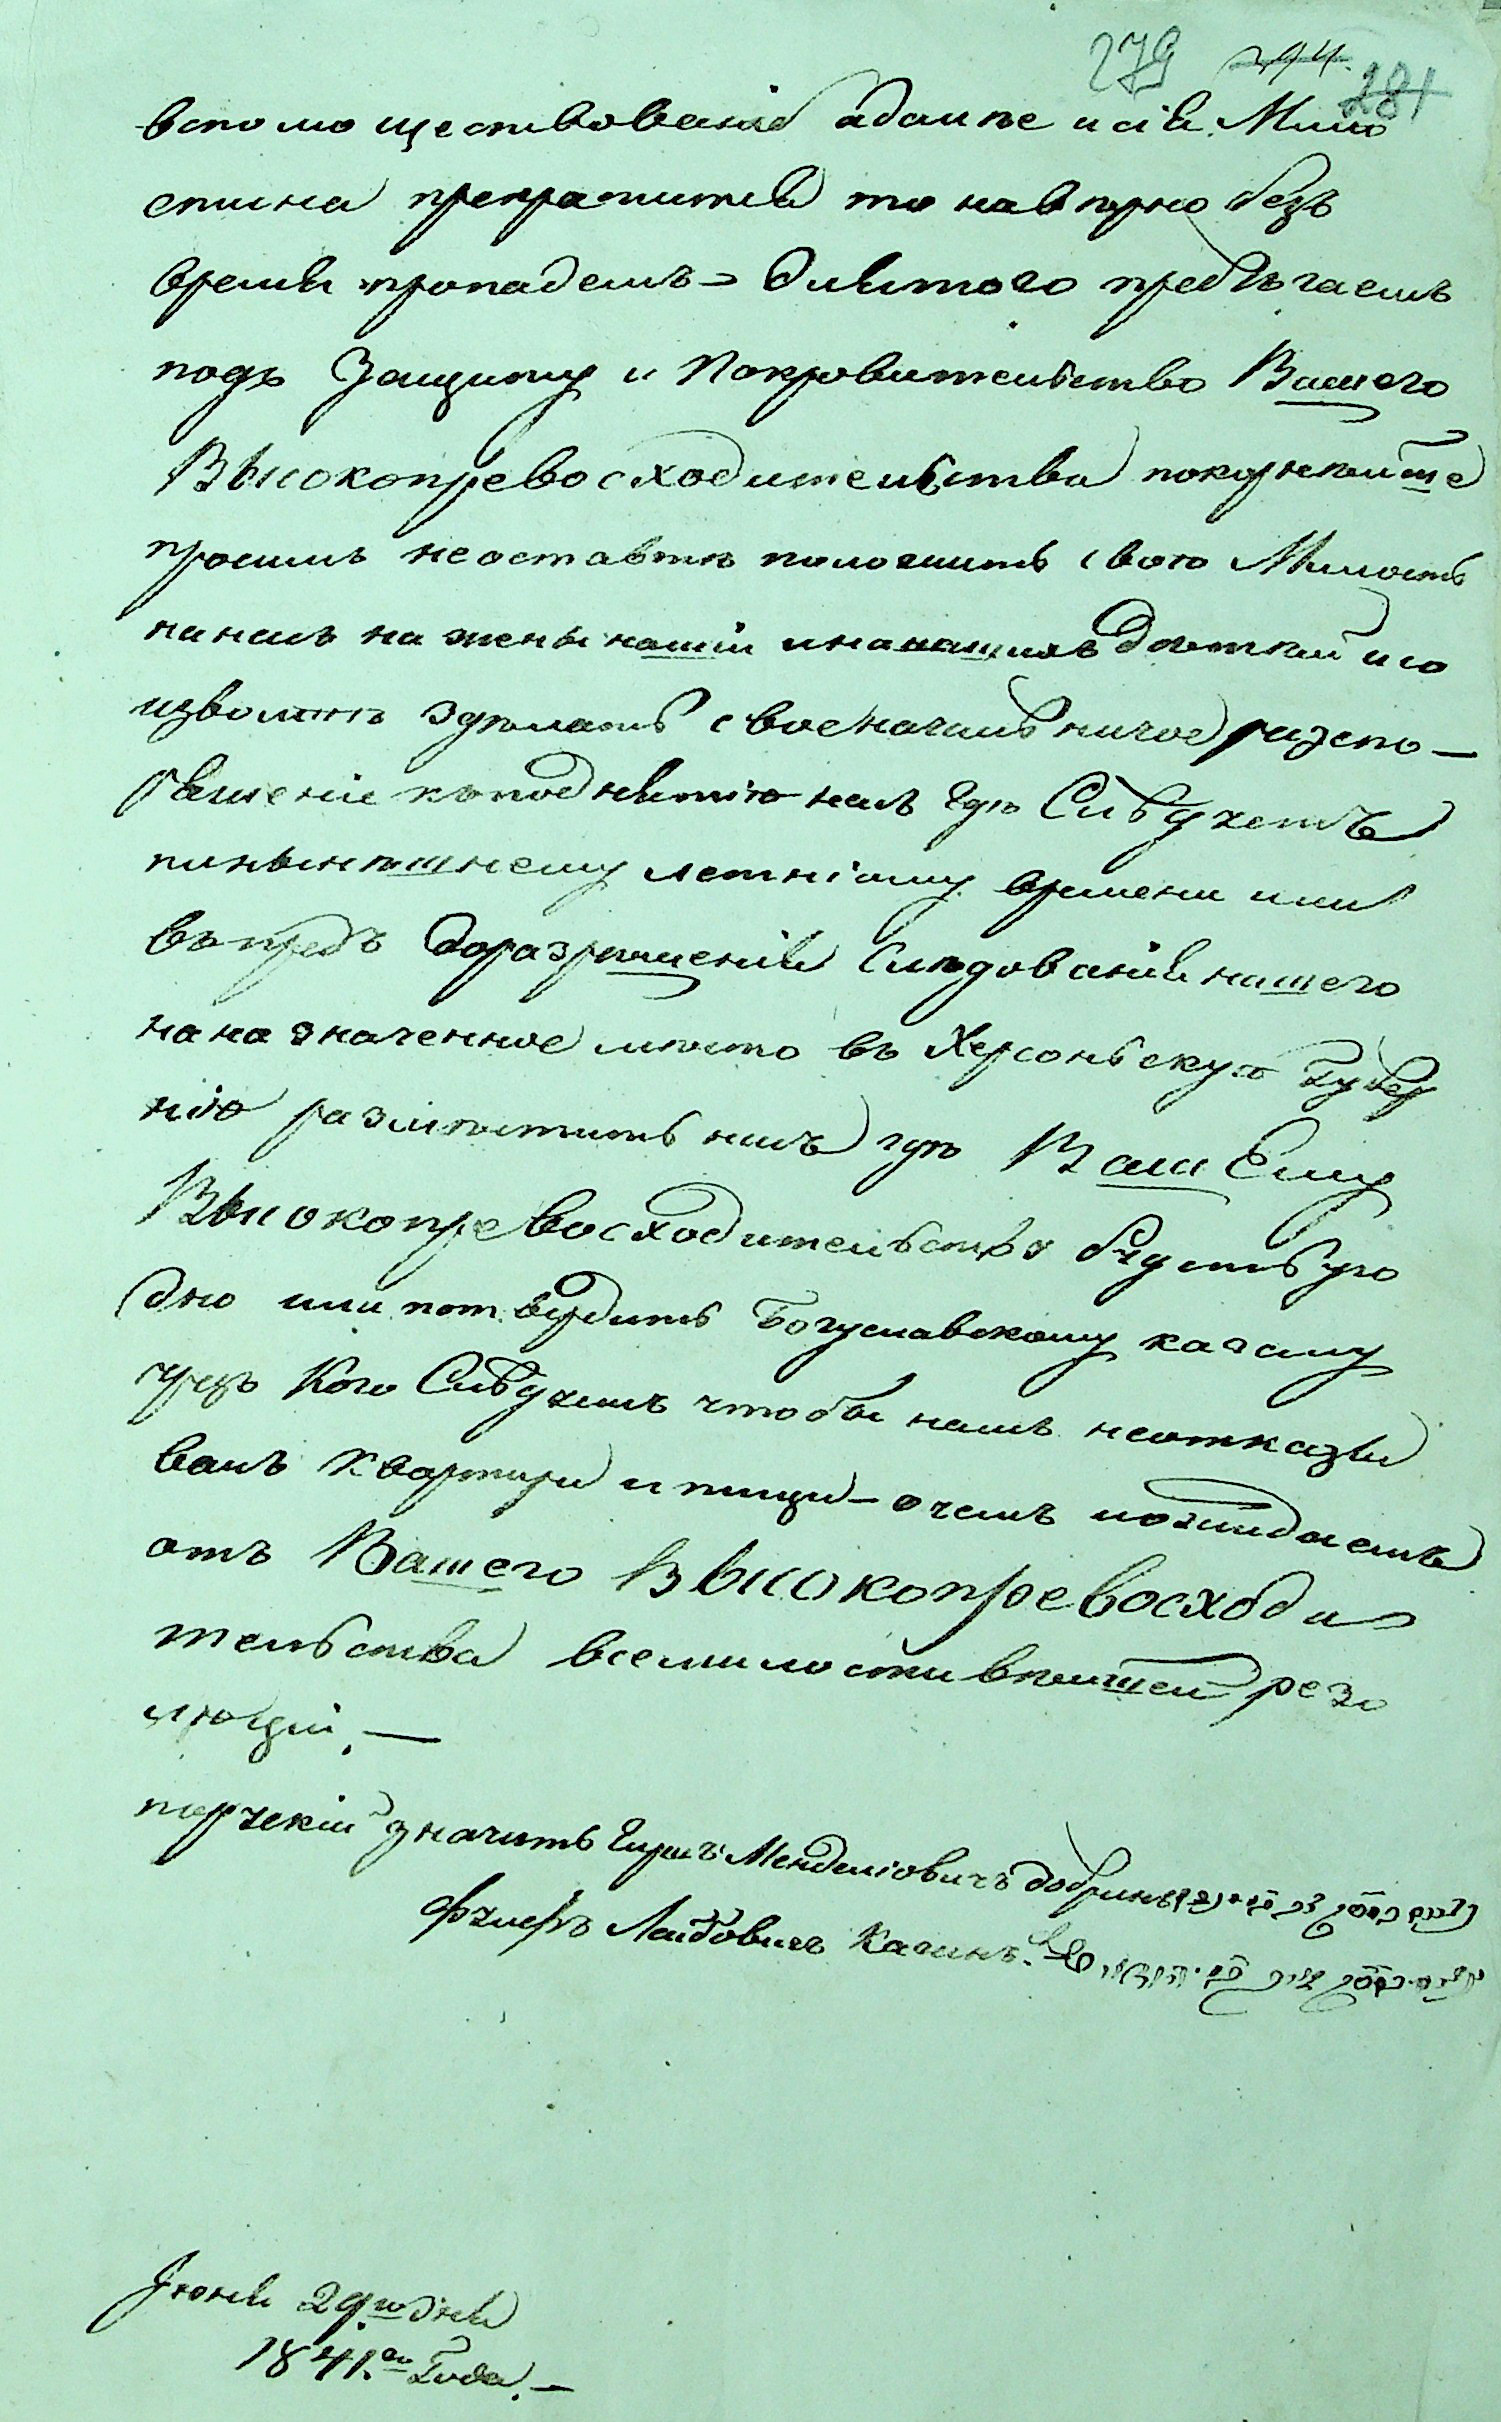 279 294. 281
вспомоществованiе адаи же и сiя Мило
стина прекратится то наверно безъ
времѣя пропадемъ - для того пребѣгаемъ
подъ Защиту и Покровительство Вашего
Высокопревосходительства покорнейше
просимъ не оставить положить свою Милость
на насъ на жены нашiи и на нашихъ деткей и со
изволить зделать свое начальничое разспо-
ряженiе къ поднятiю насъ где Слѣдуетъ
по нынешнему летнiому времени или
въ предъ до разрешенiя Следованiя нашего
на назначенное место въ Херсоньскую Губер
нiю разместить насъ где ВашЕму
Высокопревосходительству будетъ уго
дно или потвердить Богуславскому кагалу
чрезъ Кого Следуетъ чтобы намъ не отказы
валъ квартири и пищи - о чемъ и ожидаемъ
отъ Вашего Высокопревосходи
тельства всемилостивнейшей резо
люцiи. -
по еврейскiй значитъ Гиршъ Менделiовичъ Добринъ
Лейбовичъ Каганъ
Iюня 29го дня
1841го Года. -